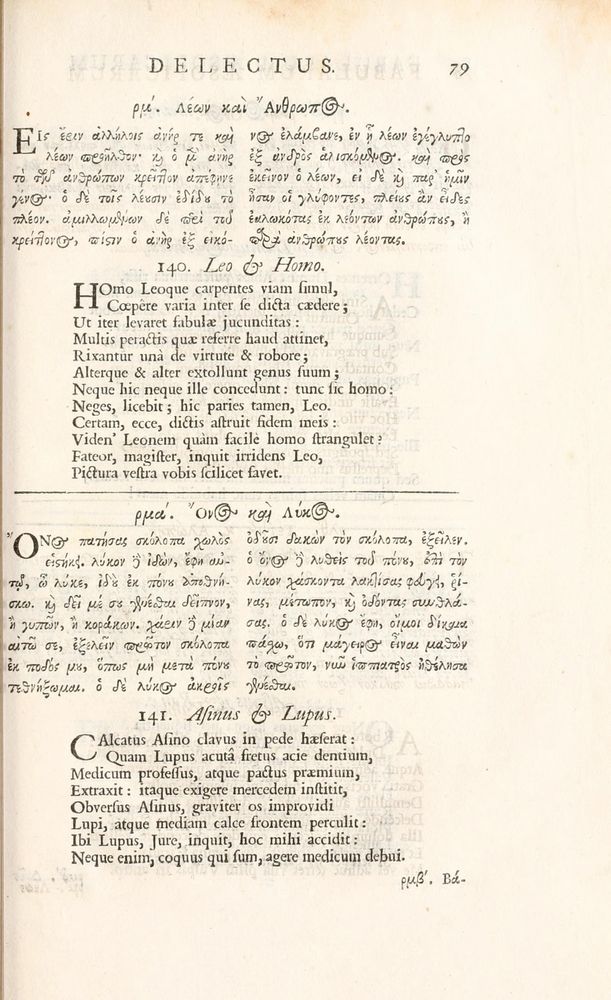 DELECTUS. 79
ρμʹ. Λέων καὶ Ἄνθρωπος.
Εἰς ἔριν ἀλλήλοις ἀνήρ τε καὶ
λέων προῆλθον· καὶ ὁ μὲν ἀνὴρ
τὸ τῶν ἀνθρώπων κρεῖττον ἀπέφηνε
γένος· ὁ δὲ τοῖς λέουσιν ἐδίδου τὸ
πλέον. ἁμιλλωμένων δὲ περὶ τοῦ
κρείττονος, πίστιν ὁ ἀνὴρ ἐξ εἰκό-
νος ἐλάμβανε, ἐν ᾗ λέων ἐγέγλυπτο
ἐξ ἀνδρὸς ἁλισκόμενος. καὶ πρὸς
ἐκεῖνον ὁ λέων, εἰ δὲ καὶ παρ' ἡμῖν
ἦσαν οἱ γλύφοντες, πλείους ἂν εἶδες
ἑαλωκότας ἐκ λεόντων ἀνθρώπους, ἢ
παρὰ ἀνθρώπους λέοντας.
140. Leo & Homo.
HOmo Leoque carpentes viam simul,
Cœpêre varia inter se dicta cædere;
Ut iter levaret fabulæ jucunditas:
Multis peractis quæ referre haud attinet,
Rixantur unà de virtute & robore;
Alterque & alter extollunt genus suum;
Neque hic neque ille concedunt: tunc sic homo:
Neges, licebit; hic paries tamen, Leo.
Certam, ecce, dictis astruit fidem meis:
Viden' Leonem quàm facilè homo strangulet?
Fateor, magister, inquit irridens Leo,
Pictura vestra vobis scilicet favet.
ρμαʹ. Ὄνος καὶ Λύκος.
ὌΝος πατήσας σκόλοπα χωλὸς
εἱστήκει. λύκον δὲ ἰδὼν, ἔφη αὐ-
τῷ, ὦ λύκε, ἰδοὺ ἐκ πόνου ἀποθνή-
σκω. καὶ δεῖ με σοῦ γενέσθαι δεῖπνον,
ἢ γυπῶν, ἢ κοράκων. χάριν δὲ μίαν
αἰτῶ σε, ἐξελεῖν πρῶτον σκόλοπα
ἐκ ποδός μου, ὅπως μὴ μετὰ πόνου
τεθνήξωμαι. ὁ δὲ λύκος ἄκροις
ὀδοῦσι δακὼν τὸν σκόλοπα, ἐξεῖλεν.
ὁ ὄνος δὲ λυθεὶς τοῦ πόνου, ἐπὶ τὸν
λύκον χάσκοντα λακτίσας φεύγει, ῥί-
νας, μέτωπον, καὶ ὀδόντας συνθλά-
σας. ὁ δὲ λύκος ἔφη, οἴμοι δίκαια
πάσχω, ὅτι μάγειρος εἶναι μαθὼν
τὸ πρῶτον, νῦν ἱππιατρὸς ἠθέλησα
γενέσθαι.
141. Asinus & Lupus.
CAlcatus Asino clavus in pede hæserat:
Quam Lupus acutâ fretus acie dentium,
Medicum professus, atque pactus præmium,
Extraxit: itaque exigere mercedem institit,
Obversus Asinus, graviter os improvidi
Lupi, atque mediam calce frontem perculit:
Ibi Lupus, Jure, inquit, hoc mihi accidit:
Neque enim, coquus qui sum, agere medicum debui.
ρμβʹ. Βά-